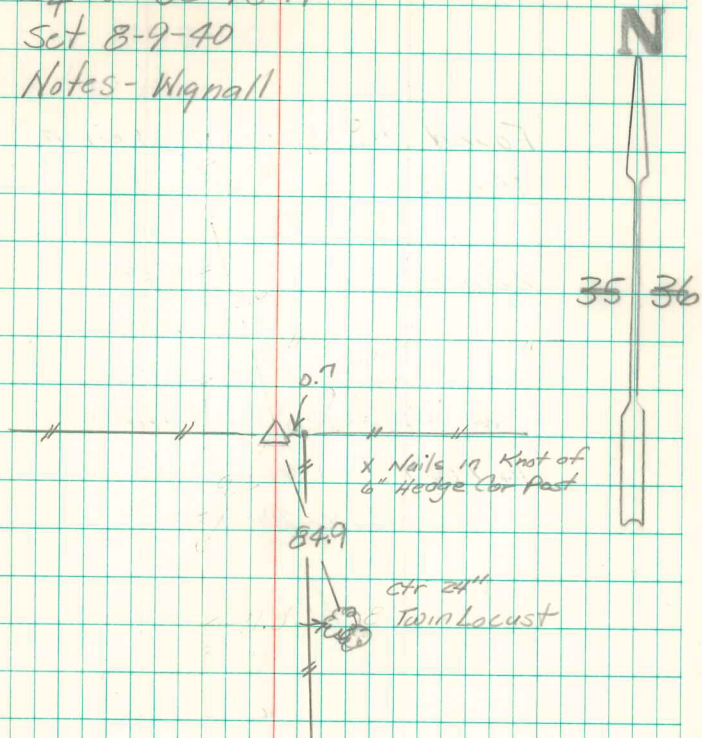 Set 8-9-40
Notes - Wignall
N
35 36
0.7
x Nails in Knot of
6" Hedge Cor Post
84.9
Ctr 24"
Twin Locust